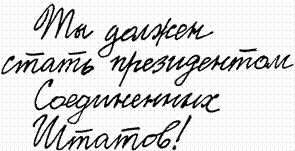 Ты должен
стать президентом
Соединенных
Штатов!